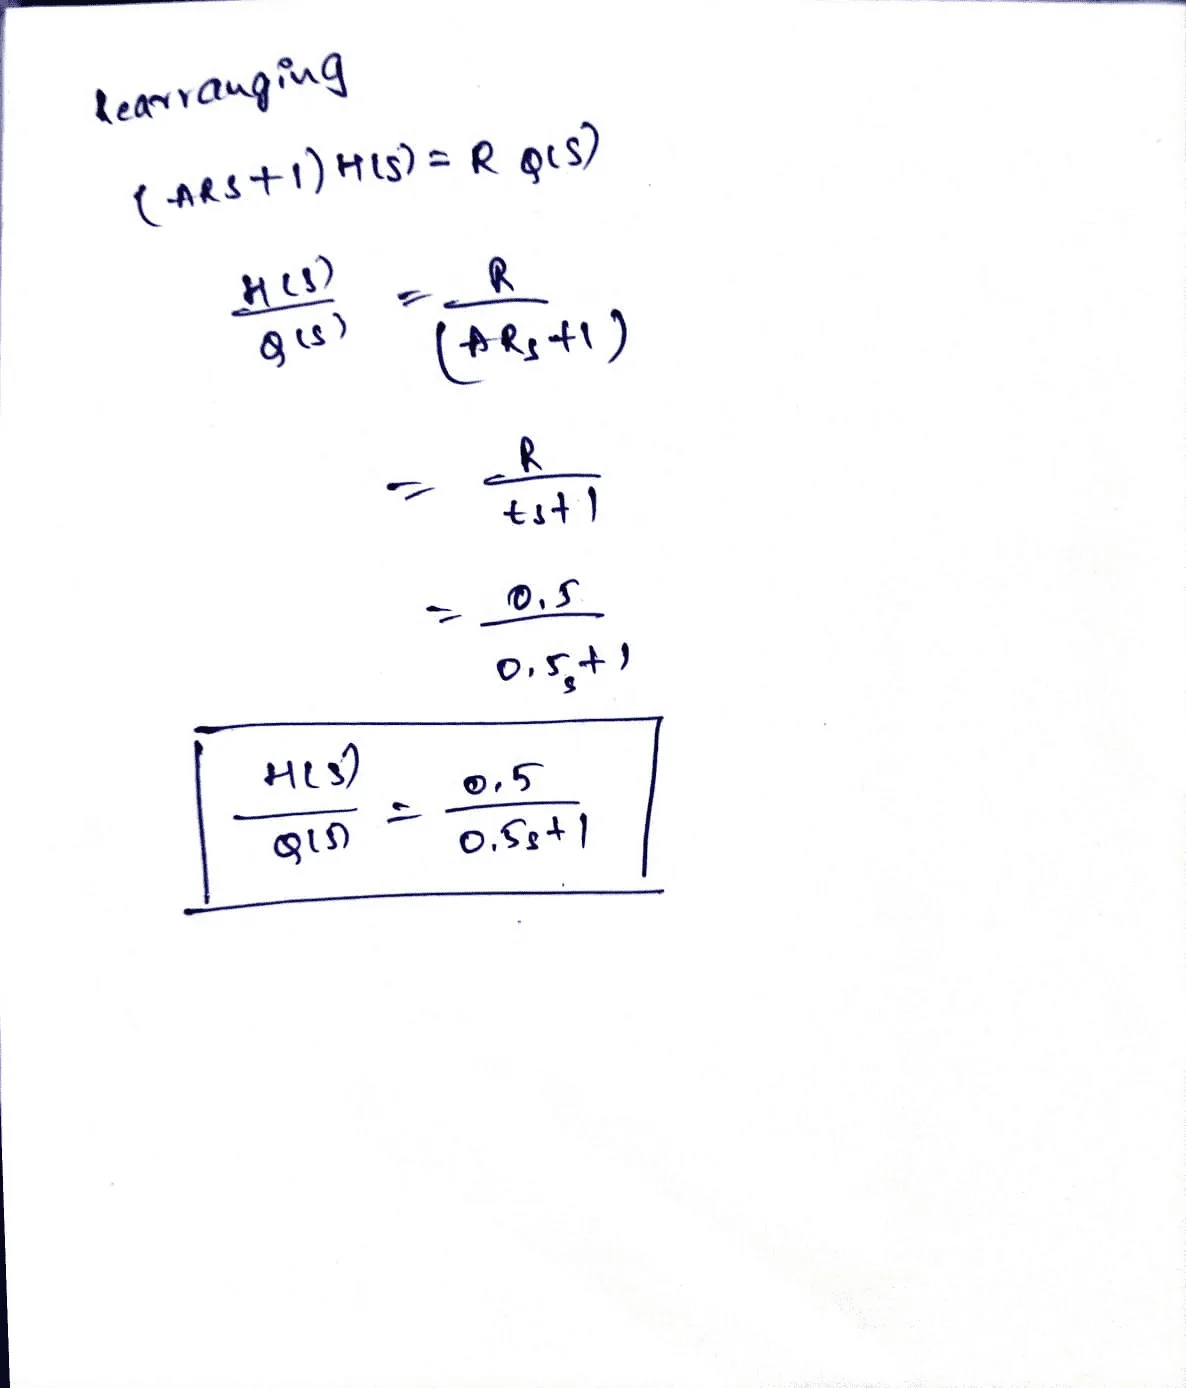 Rearranging
(ARS+1) H(S) = R Q(S)
H(S) / Q(S) = R / (ARS+1)
= R / ts+1
= 0.5 / 0.5s+1
H(S) / Q(S) = 0.5 / 0.5s+1